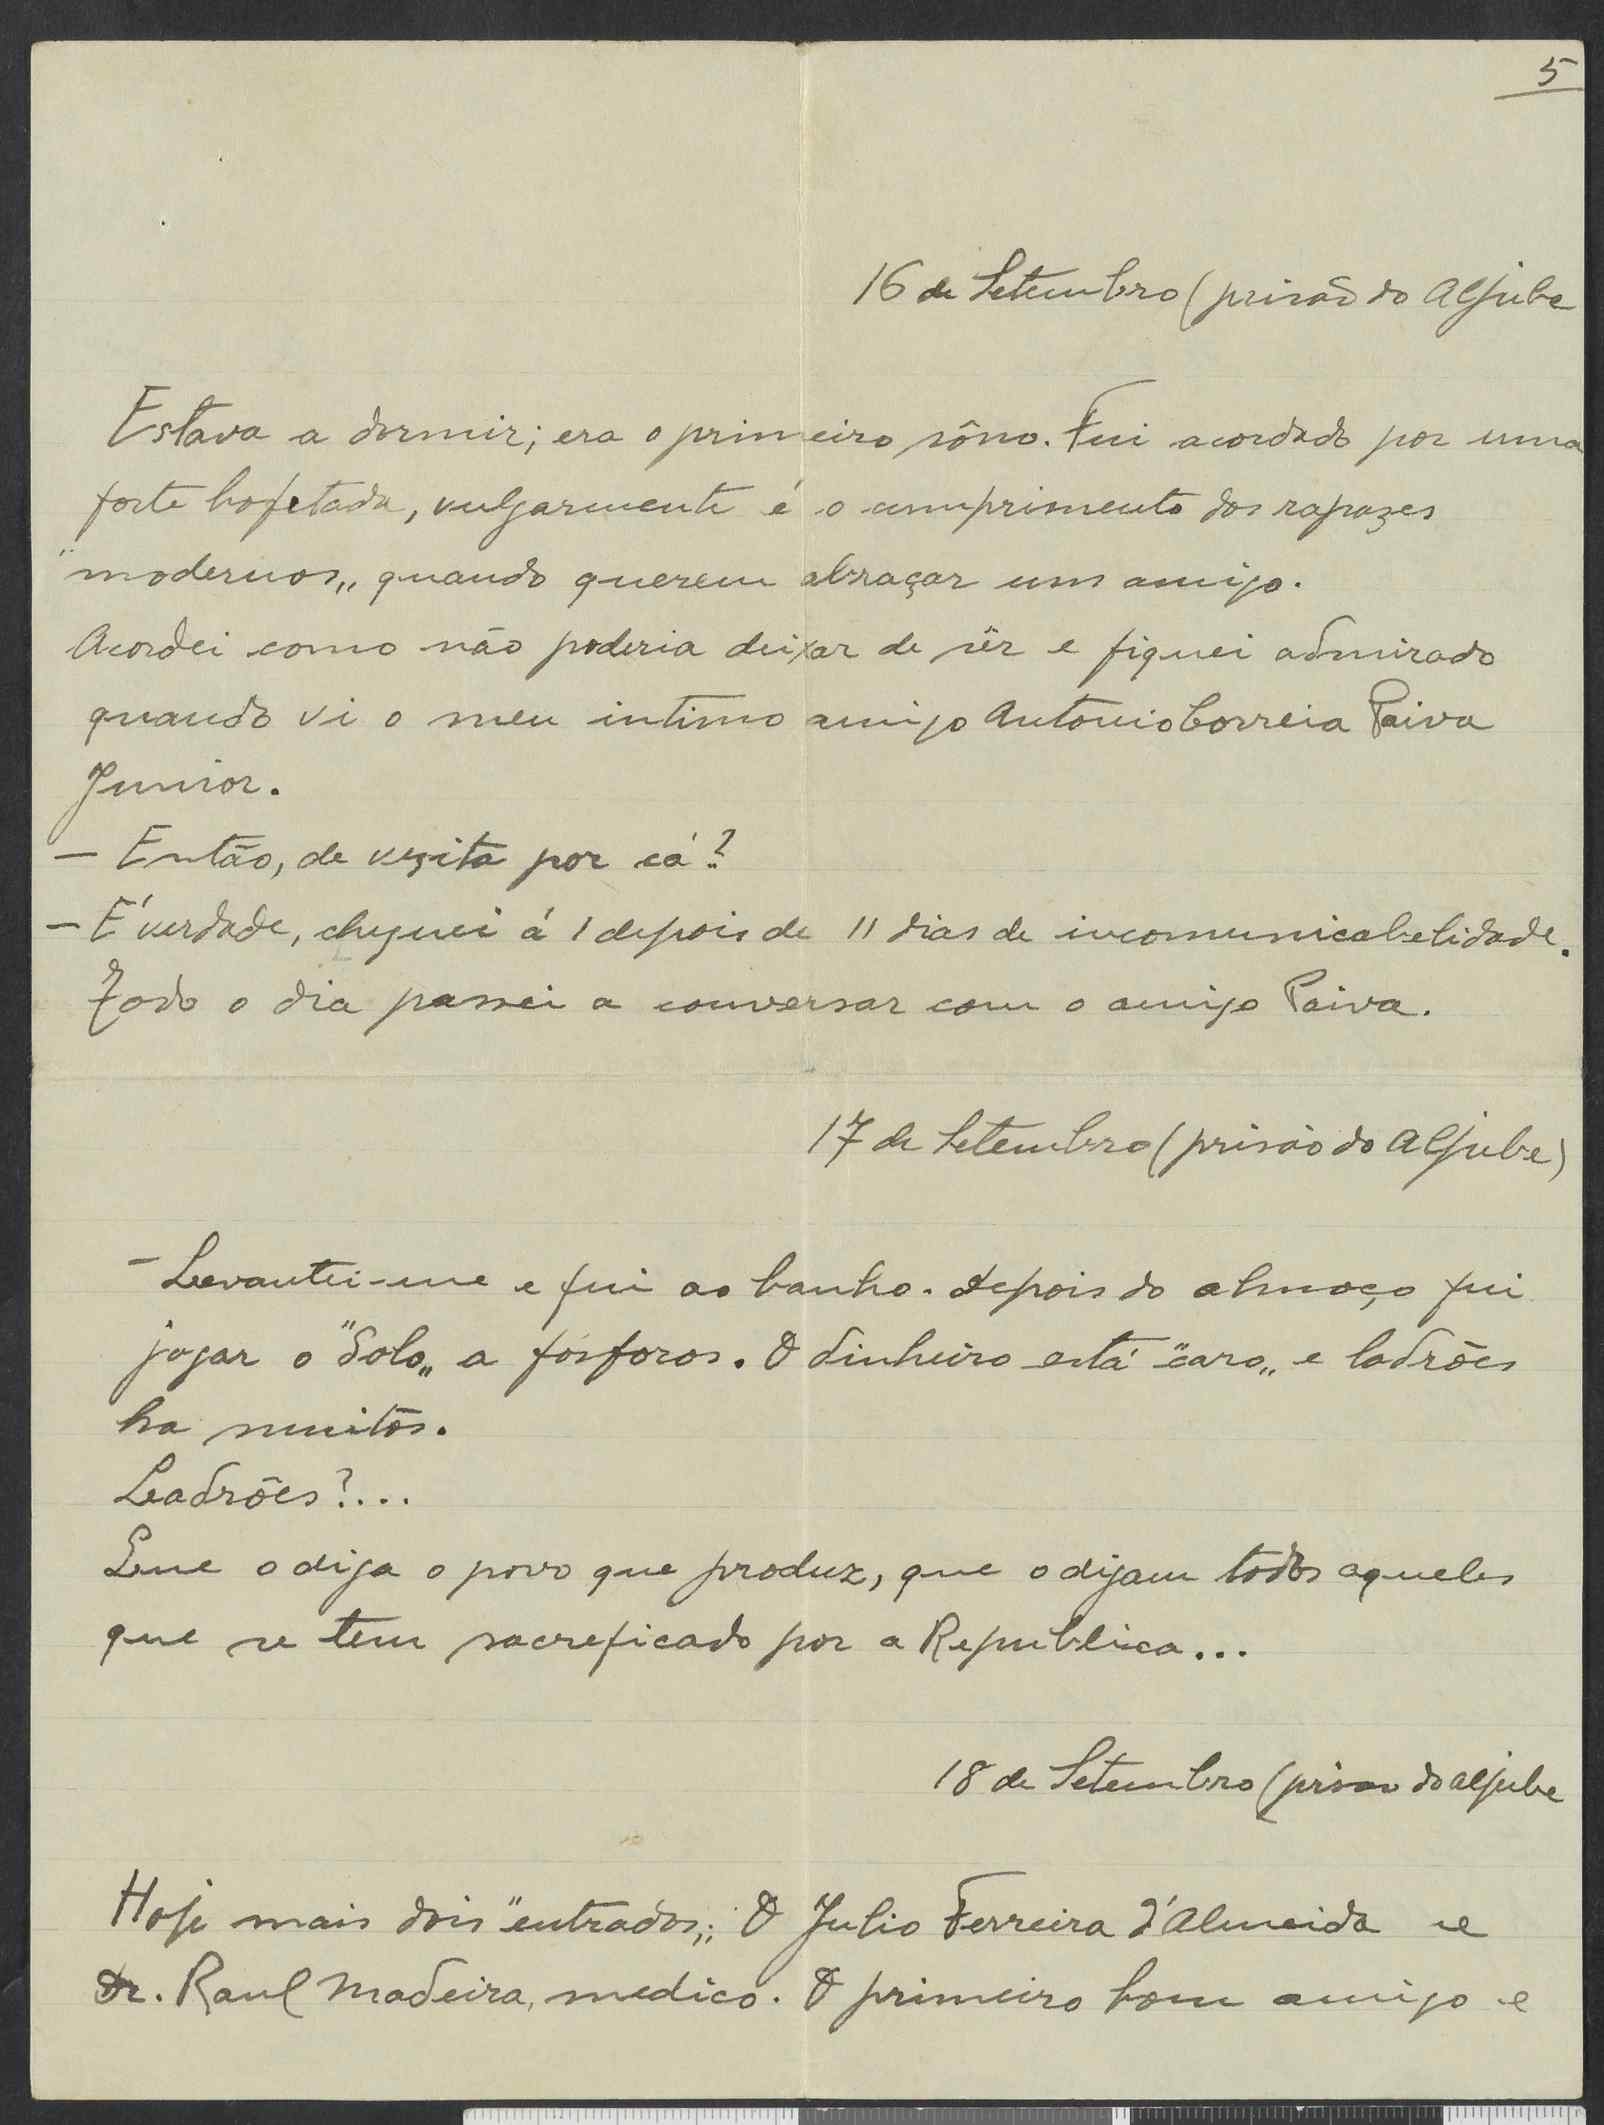 5
16 de Setembro (prisão do Aljube
Estava a dormir; era o primeiro sôno. Fui acordado por uma
forte bofetada, vulgarmente é o cumprimento dos rapazes
"modernos„ quando querem abraçar um amigo.
Acordei como não poderia deixar de sêr e fiquei admirado
quando vi o meu intimo amigo Antonio Correia Paiva
Junior.
— Então, de vezita por cá?
— É verdade, cheguei á 1 depois de 11 dias de incomunicabelidade.
Todo o dia passei a conversar com o amigo Paiva.
17 de Setembro (prisão do Aljube)
— Levantei-me e fui ao banho. depois do almoço fui
jogar o "Solo„ a fósforos. O dinheiro está "caro„ e ladrões
ha muitos.
Ladrões?...
Que o diga o povo que produz, que o digam todos aqueles
que se tem sacreficado por a Republica...
18 de Setembro (prisao do aljube
Hoje mais dois "entrados„: O Julio Ferreira d'Almeida e
Dr. Raul Madeira, medico. O primeiro bom amigo e